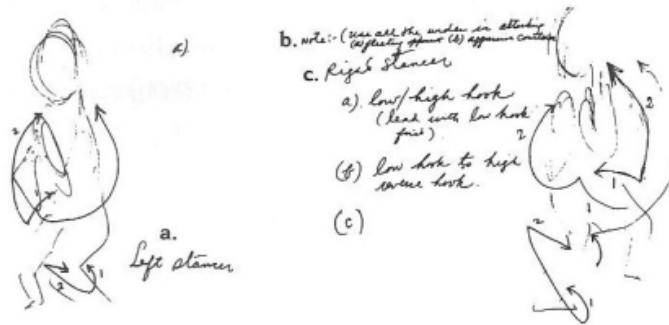 a)
2
a.
Left stancer
2
1
b. Note:- (Use all the under in attacking
(a) fleeting opponent (b) aggressive
c. Right Stancer
a). low/high hook
(lead with low hook
first)
(b) low hook to high
reverse hook.
(c)
2
2
1
1
2
1